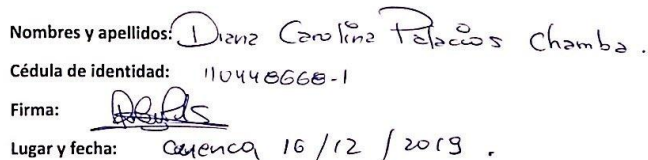 Nombres y apellidos: Diana Carolina Palacios Chamba.
Cédula de identidad: 110448668-1
Firma:
Lugar y fecha: Cuenca 16/12/2019.